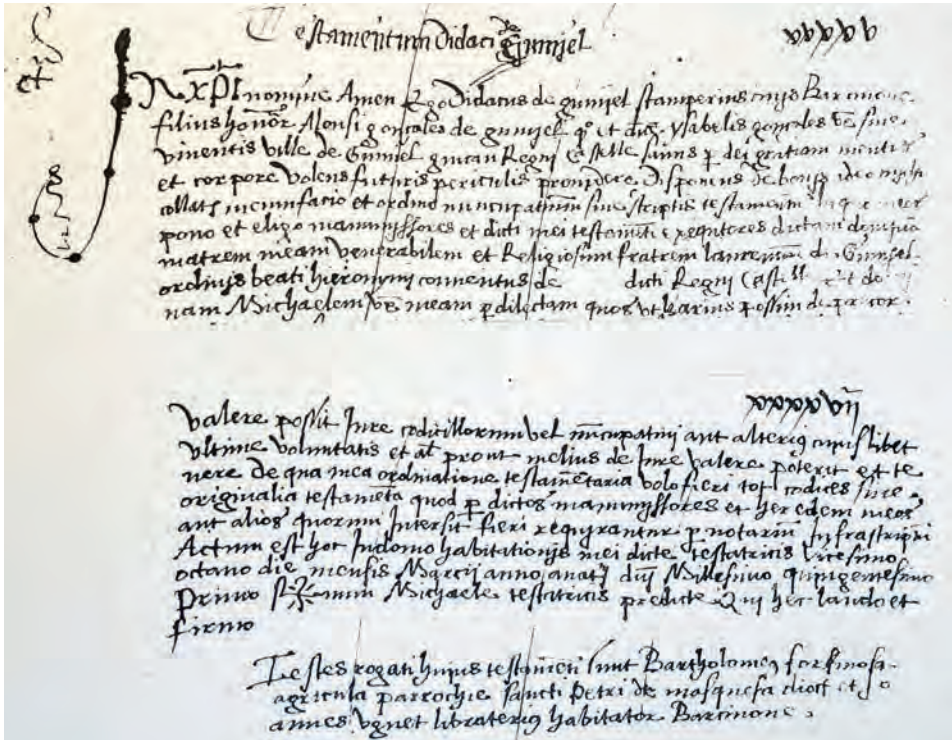 Testamentum Didaci de Gumiel
xxxxv
IN χρ̄ι nomine Amen Ego Didacus de gumiel stamperius civis Barcinone
filius honor. Alonsi gonçales de gumiel qº et dn̄e ysabelis gonçales vx̄ sue
viventis ville de Gumiel Regni Castelle sanus p dei gratiam mente
et corpore volens futuris periculis providere Disponens de bonis ideo michi
collatis facio et ordino nuncupativum sive scriptis testamentum in quo
pono et eligo manumissores et dicti mei testamenti exequtores dictam dompnā
matrem meam venerabilem et Religiosum fratrem de Gumiel
ordinis beati hieronymi conventus de dicti Regni Castelle et do
nam Michaelem vx̄ meam p dilectam quos ut carius possum de p cor
xxxxvii
valere possit Jure codicillorum vel nūcupativi aut alterius cuiuslibet
ultime voluntatis et al prout melius de Jure valere poterit et te
nere De qua mea ordinatione testamētaria volo fieri tot codices sive
originalia testamēta quod p dictos manumissores et heredem meos
aut alios quorum Intersit fieri requirantur p notariū Infrascriptū
Actum est hoc In domo habitationis mei dicte testatricis vicesimo
octavo die mensis Marcii anno a nat dn̄i Millesimo quingentesimo
Primo Sig num Michaele testatricis predicte Qui hec laudo et
firmo
Testes rogati huius testamēti sunt Bartholomeus
agricola parrochie sancti Petri de masquefa dioc et Jo
annes ugnet libraterius habitator Barcinone.